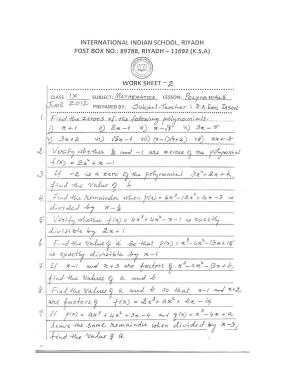 INTERNATIONAL INDIAN SCHOOL, RIYADH
POST BOX NO.: 89788, RIYADH – 11692 (K.S.A)
WORK SHEET - 2
CLASS IX SUBJECT: MATHEMATICS LESSON: POLYNOMIALS
June 2012 PREPARED BY: Subject-Teacher:
1. Find the zeroes of the following polynomials.
i) x+1 ii) 2x-1
v) 3x+2
2. Verify whether and -1 are zeroes of the polynomial
f(x) = 2x²+x-1
3. If -2 is a zero of the polynomial 3x²+2x+k,
find the value of k
4. Find the remainder when
divided by
5. Verify whether p(x) = 4x³+4x²-x-1 is exactly
divisible by 2x+1
6. Find the value of 'a' so that
is exactly divisible by x-1
7. If x-1 and x+3 are factors of
find the values of a and b
8. Find the values of a and b so that x-1 and x+2
are factors of f(x) = 2x³+ax²+bx-14
9. If p(x) = ax³+4x²+3x-4 and q(x) = x³-4x+a
leave the same remainder when divided by x-3,
find the value of a